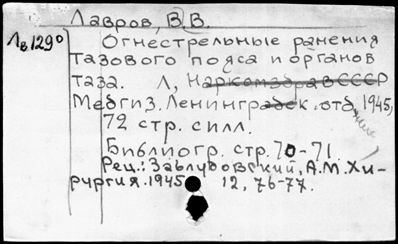 Лавров, В.В.
Лв 1290
Огнестрельные ранения
тазового пояса и органов
таза. Л, Наркомздрав СССР
Медгиз. Ленинградск. отд, 1945,
72 стр. с илл.
Библиогр. стр. 70-71
Рец.: Заблудовский, А.М. Хи-
рургия. 1945 12, 76-77.